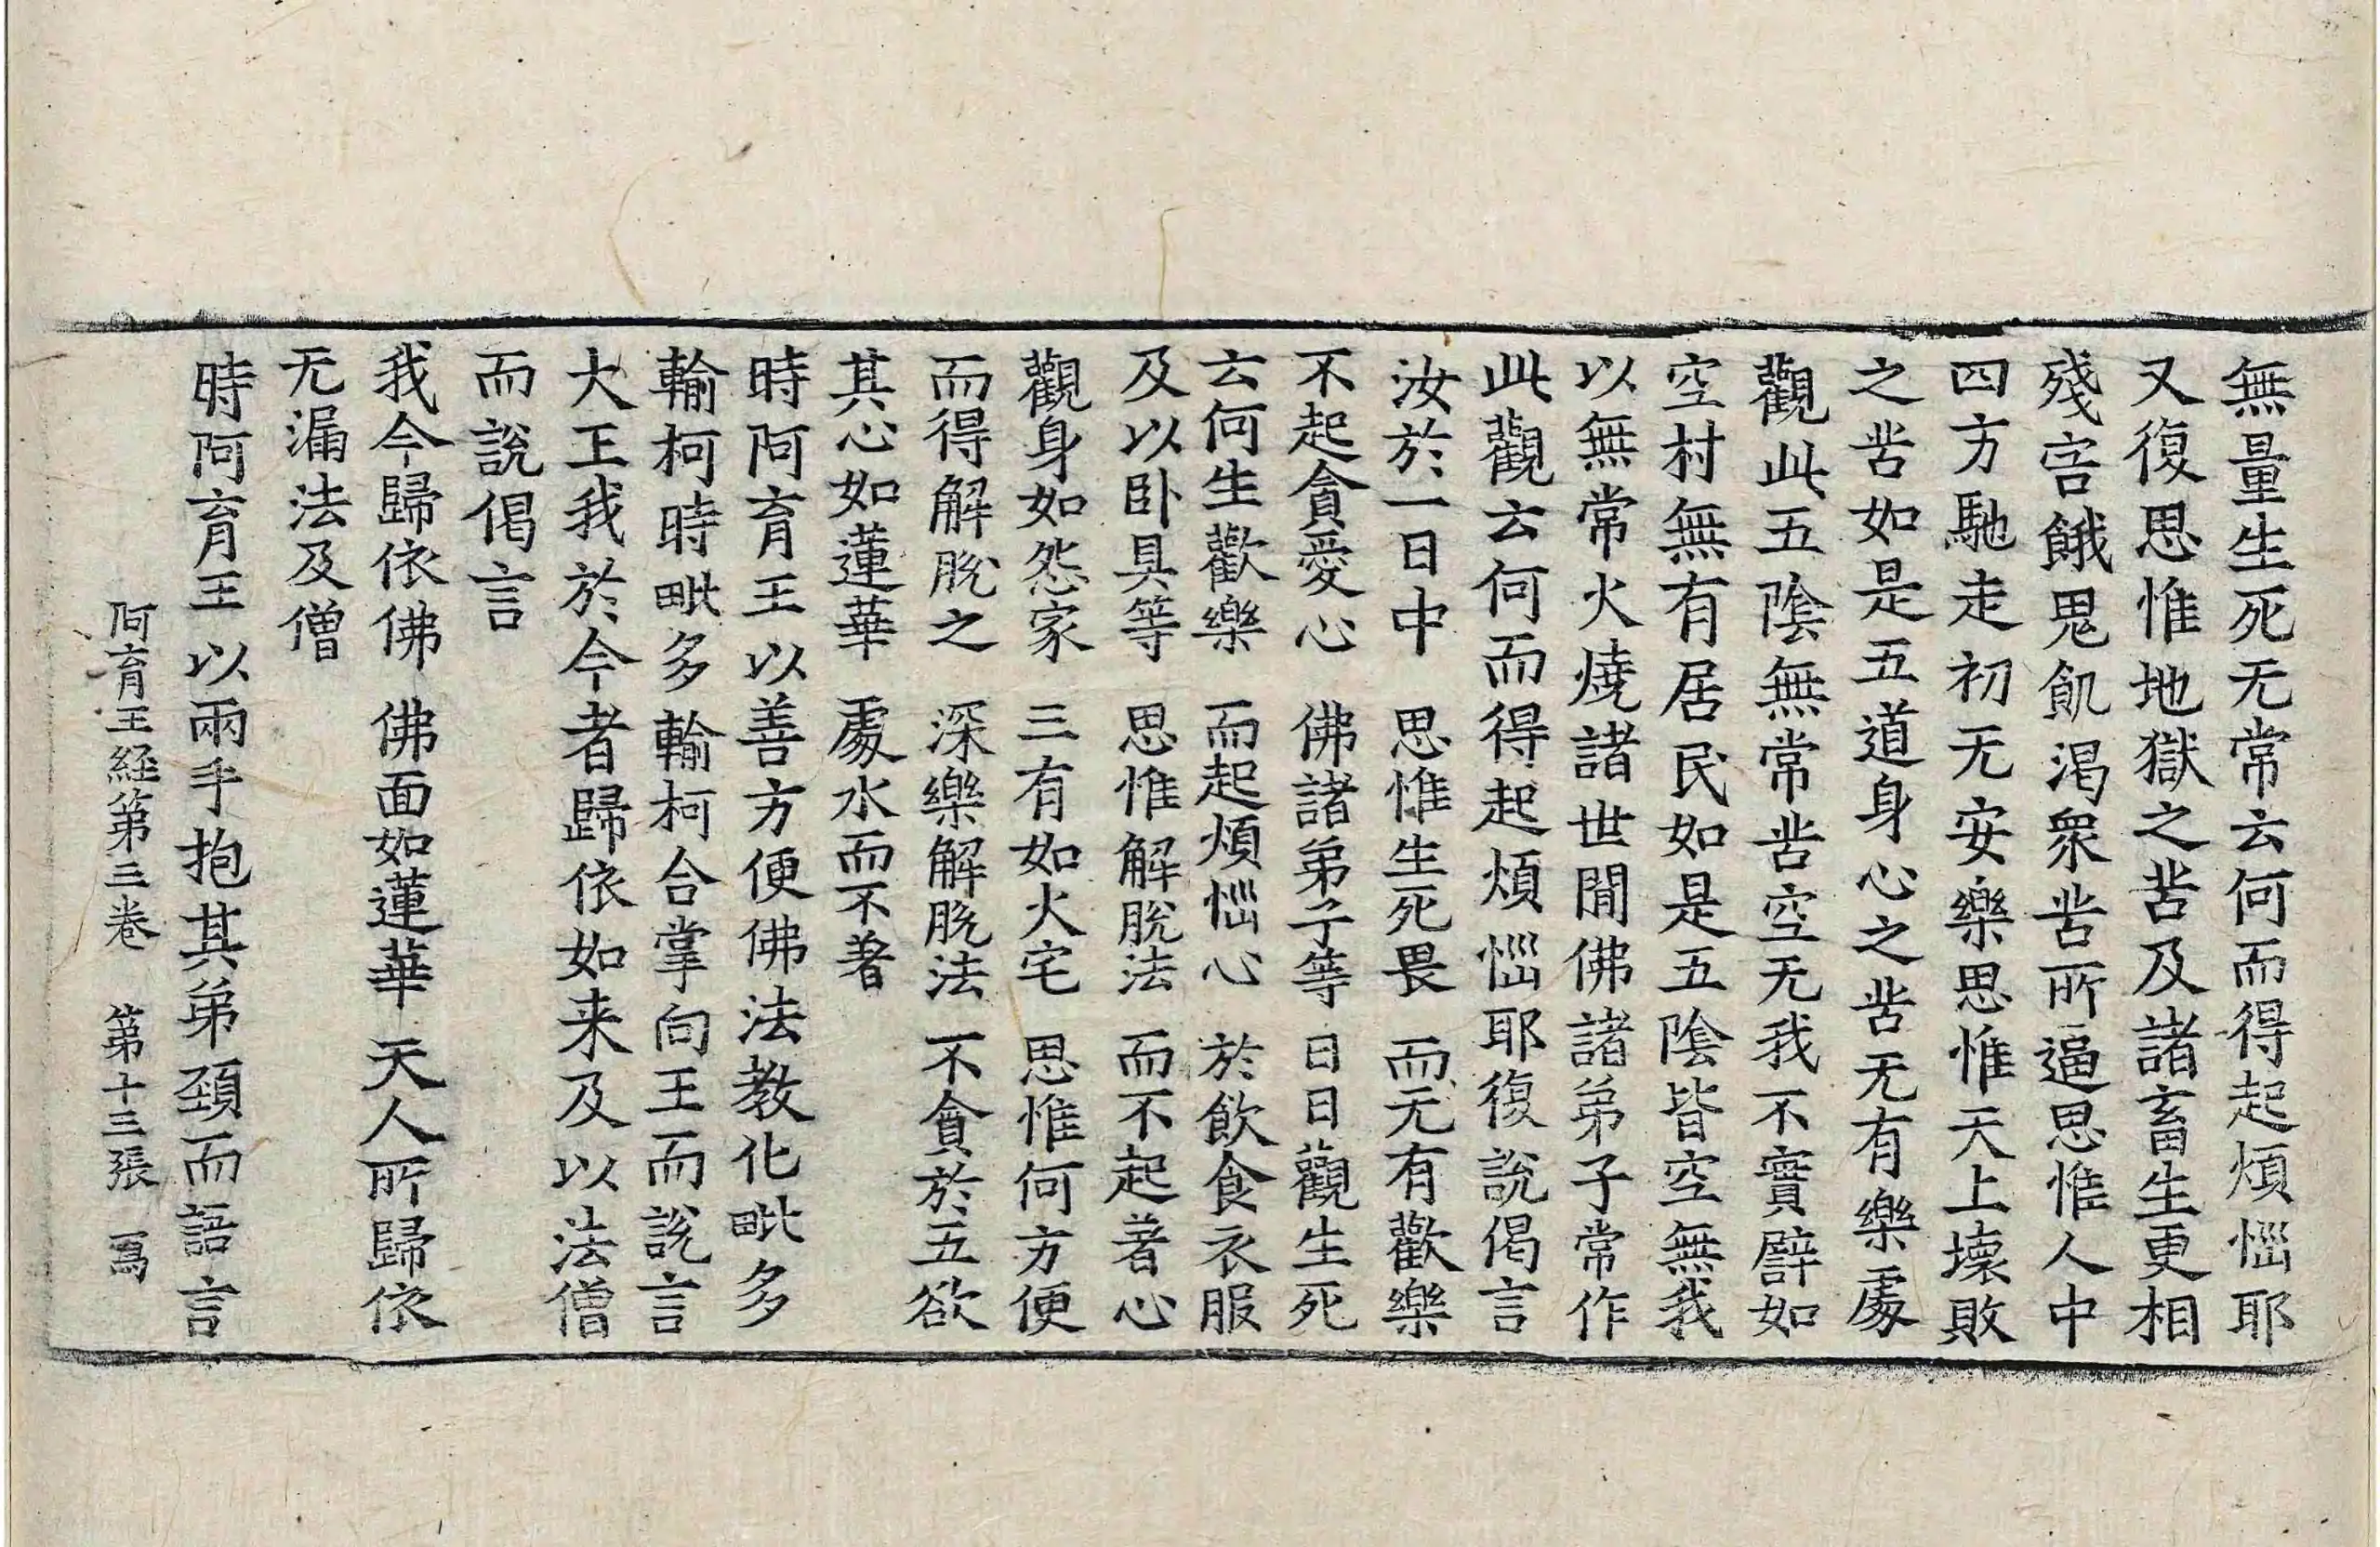 無量生死无常云何而得起煩惱耶
又復思惟地獄之苦及諸畜生更相
殘害餓鬼飢渴衆苦所逼思惟人中
四方馳走初无安樂思惟天上壞敗
之苦如是五道身心之苦无有樂處
觀此五陰無常苦空无我不實譬如
空村無有居民如是五陰皆空無我
以無常火燒諸世閒佛諸弟子常作
此觀云何而得起煩惱耶復說偈言
汝於一日中　思惟生死畏　而无有歡樂
不起貪愛心　佛諸弟子等　日日觀生死
云何生歡樂　而起煩惱心　於飲食衣服
及以卧具等　思惟解脫法　而不起著心
觀身如怨家　三有如火宅　思惟何方便
而得解脫之　深樂解脫法　不貪於五欲
其心如蓮華　處水而不著
時阿育王以善方便佛法教化毗多
輸柯時毗多輸柯合掌向王而說言
大王我於今者歸依如来及以法僧
而說偈言
我今歸依佛　佛面如蓮華　天人所歸依
无漏法及僧
時阿育王以兩手抱其弟頚而語言
阿育王経第三巻　第十三張　寫